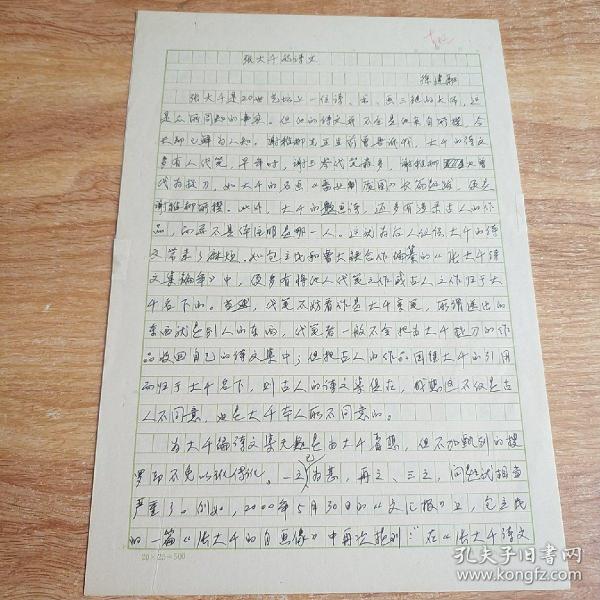 张大千的诗文
徐建融
张大千是20世纪艺坛上一位诗、书、画三绝的大师，这
是众所周知的事实。但他的诗文并不全是他亲自所撰，今
天却已鲜为人知。谢稚柳先生生前曾告诉我，大千的诗文
多有人代笔，早年时，谢玉岑代笔最多，谢稚柳也曾
代为捉刀，如大千的名点《
谢稚柳所撰。此外，大千的题画诗，还多有遗录古人的作
品，而并不具体注明是哪一人。这就为后人伋汲大千的诗
文带来了麻烦。如包立民和曹大铁合作编纂的《张大千诗
文集编年》中，便多有将他人代笔之作或古人之作归于大
千名下的。当然，代笔不妨看作是大千意思，所谓送出的
东西就是别人的东西，代笔者一般不会把为大千捉刀的作
品收回自己的诗文集中；但把古人的作品因缘大千的引用
而归于大千名下，则古人的诗文集俱在，我想这不仅是古
人不同意，也是大千本人所不同意的。
为大千编诗文集无疑是为大千着想，但不加甄别的搜
罗却不免以讹传讹。一之已为甚，再之、三之，问题就相当
严重了。例如，2000年5月30日的《文汇报》上，包立民
的一篇《张大千的自画像》中再次提到："在《张大千诗文
20×25=500
孔夫子旧书网
book.kongfz.com